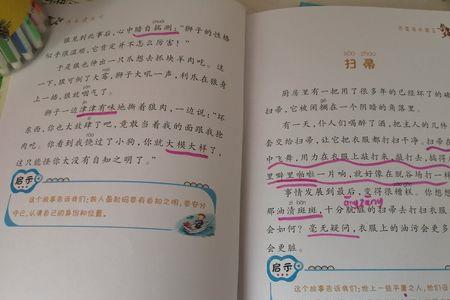 狼见到此事后，心中暗自揣测：“狮子的性格
似乎很温顺，它肯定并不怎么厉害！”
于是狼也伸出一只爪想去抓块羊肉吃。这
一下，狼可倒了大霉，狮子大吼一声，利爪在狼身
上一插，狼就咽气了。
狮子一边津津有味地撕着狼肉，一边说：“坏
东西，你也太放肆了吧，竟敢当着我的面跟我抢
肉吃。你看到我饶过了小狗，你就大模大样了，
这只能怪你太没有自知之明了。”
启示
这个故事告诉我们：做人最起码要有自知之明，要安分
守己，认清自己的身份和位置。
sào zhou
扫帚
厨房里有一把用了很多年的已经坏了的破
扫帚，它被闲搁在一个阴暗的角落里。
有一天，仆人们喝醉了酒，把主人的几件
套交给扫帚，让它把衣服都打扫干净。扫帚在
中飞舞，用力在衣服上敲打来，敲打去，搞得
里噼里啪啦一片响，就好像在脱谷场打一样
事情发展到最后，变得很糟糕。你想想
那油渍斑斑，十分肮脏的扫帚去打扫衣服
āng zāng
会如何？毫无疑问，衣服上的油污会更多
会更脏。
启示
这个故事告诉我们：世上一些平庸之人，他们